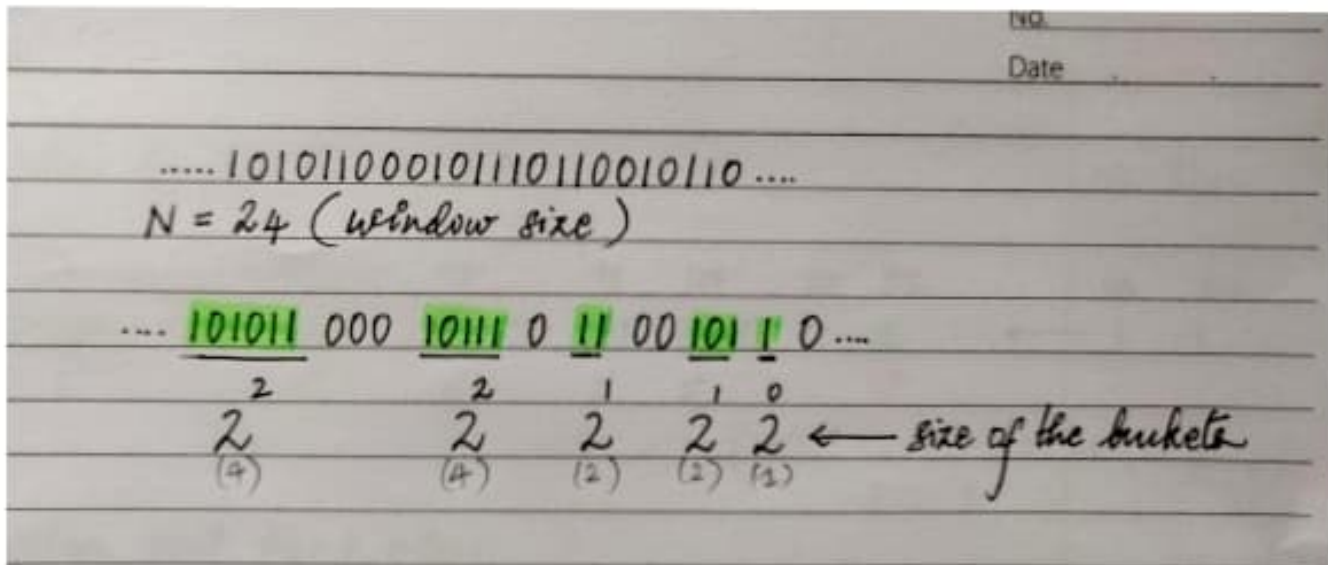 No.
Date
..... 101011000101110110010110 ....
N = 24 (window size)
.... 101011 000 10111 0 11 00 101 1 0 ....
2 2 1 1 0
2 2 2 2 2 ← size of the buckets
(4) (4) (2) (2) (1)